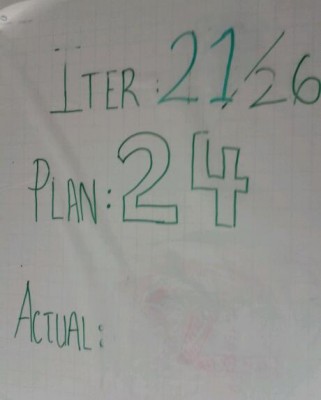 ITER: 21/26
PLAN: 24
ACTUAL: